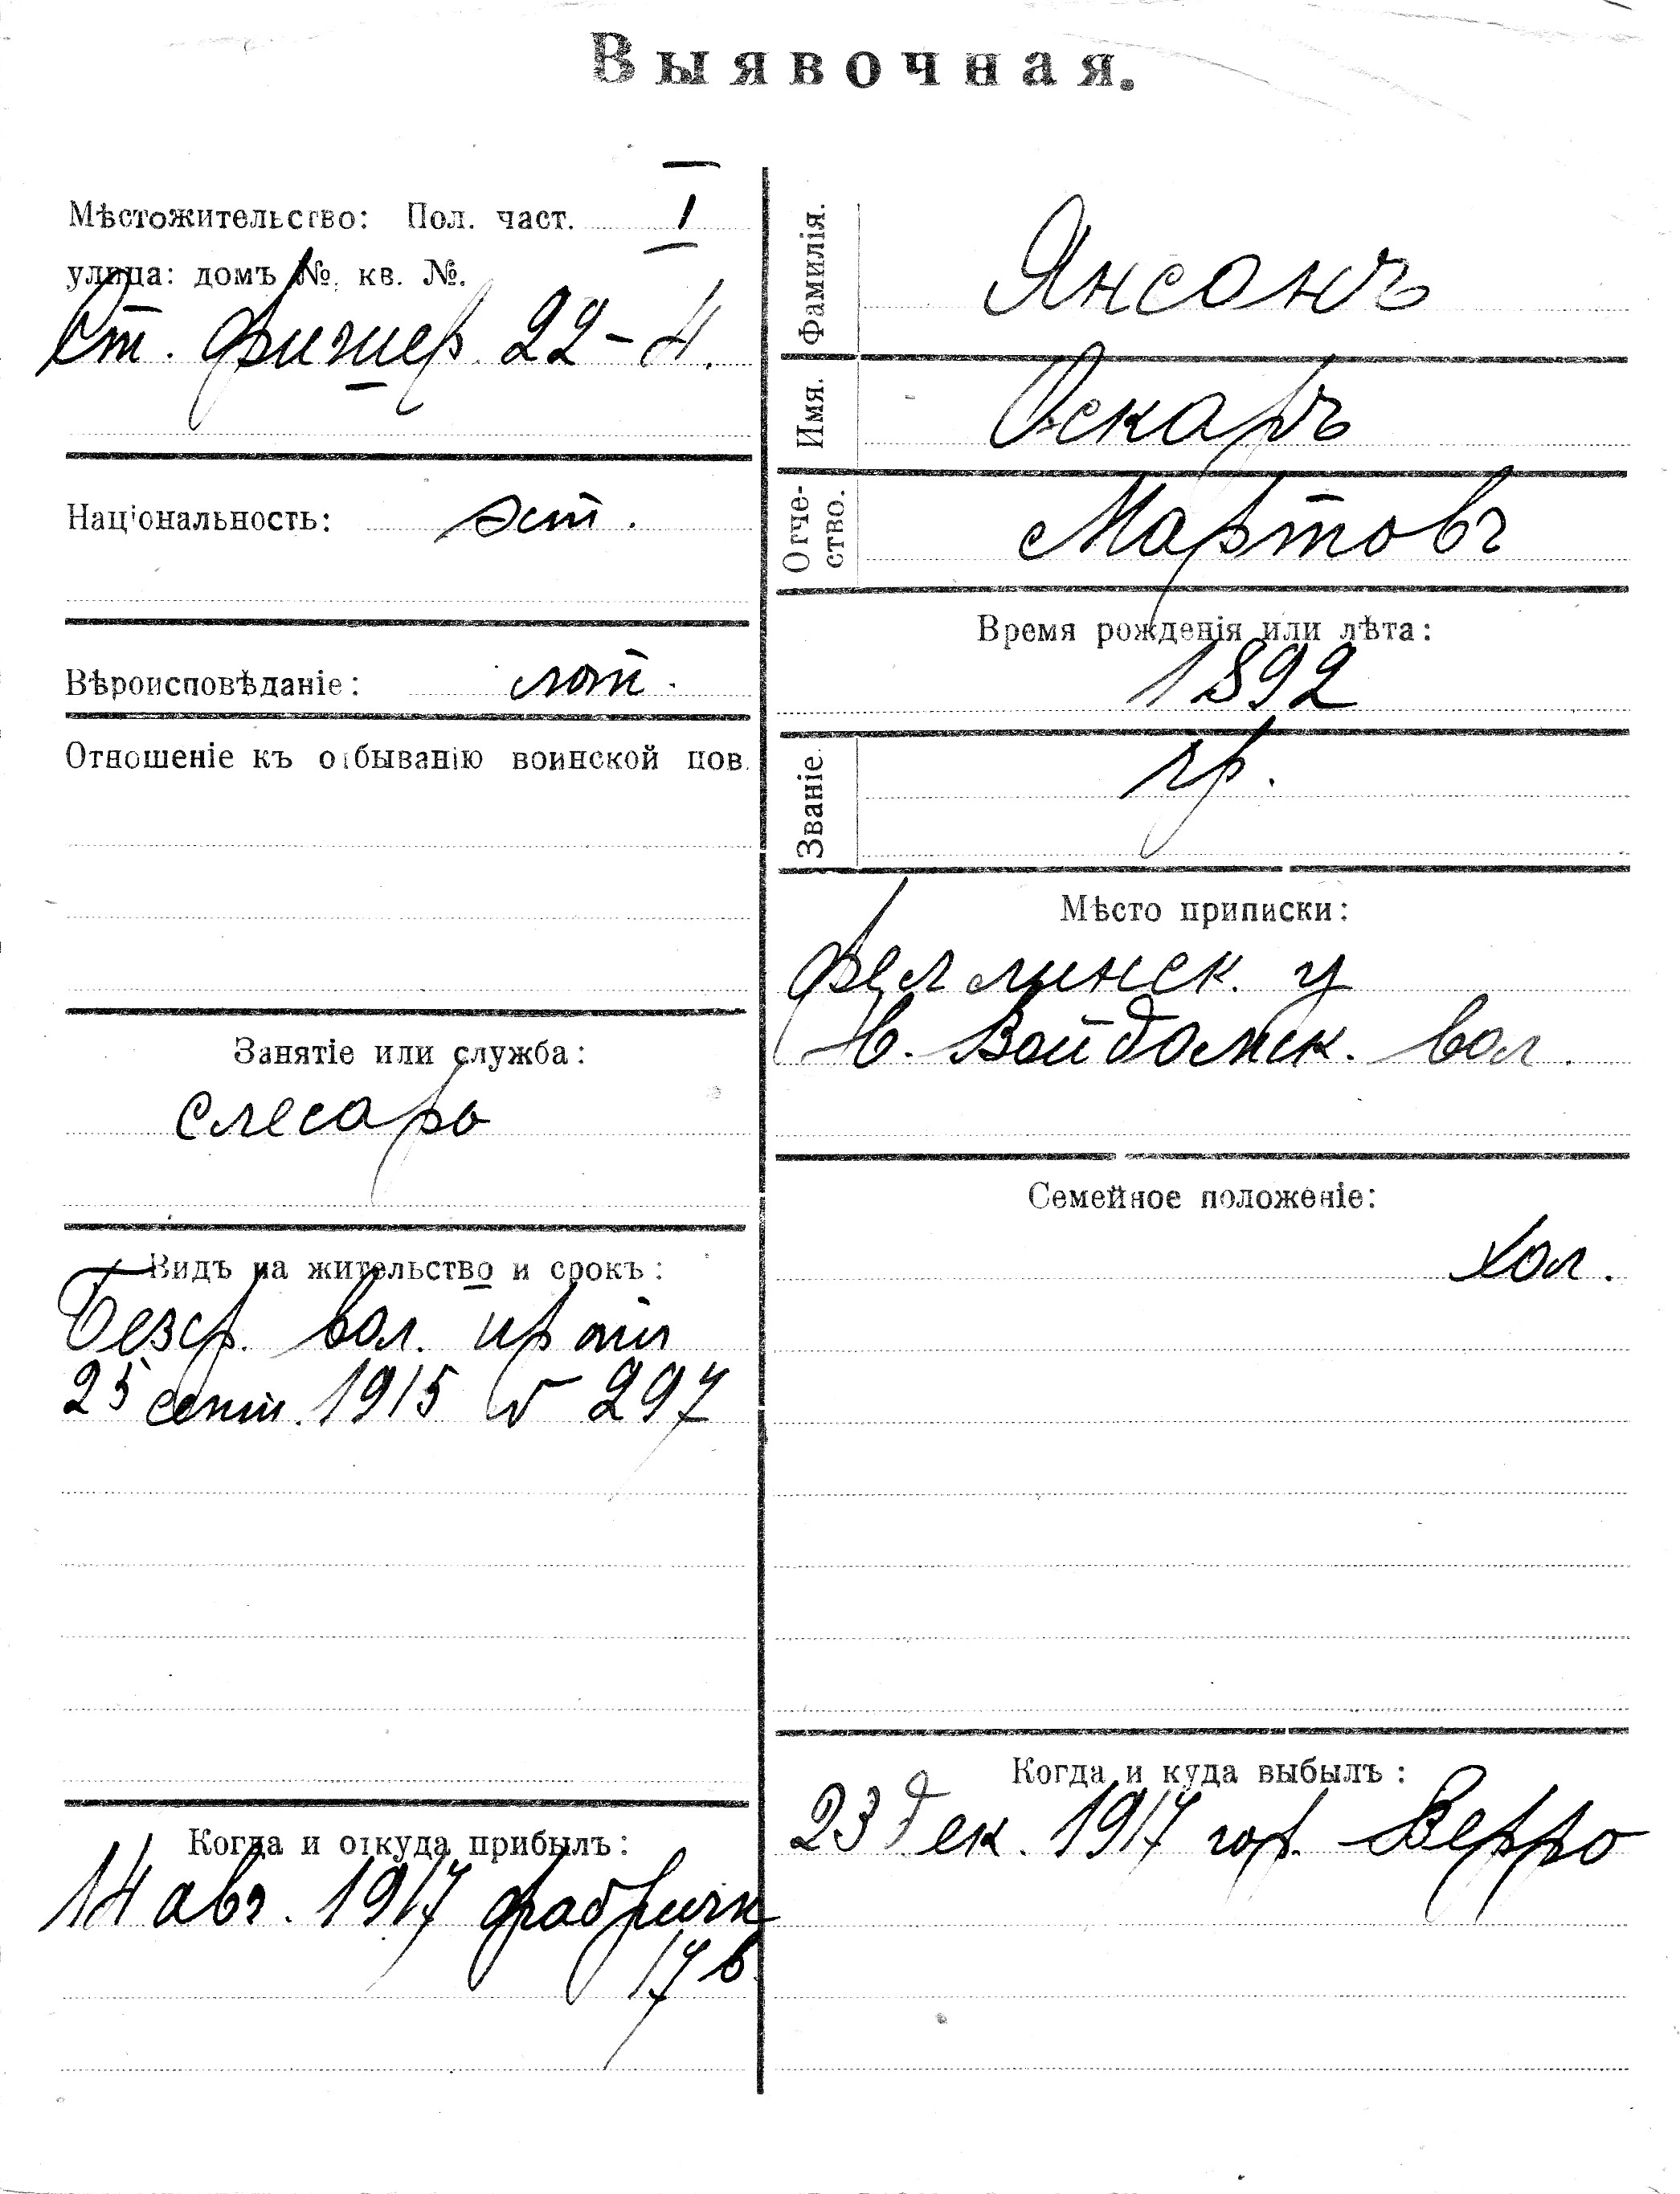 Выявочная.
Мѣстожительство: Пол. част. I
улица: домъ №. кв. №.
Ст. 22-4.
Національность: эст.
Вѣроисповѣданіе: лют.
Отношеніе къ отбыванію воинской пов.
Занятіе или служба:
слесарь
Видъ на жительство и срокъ:
Безср. вол. пр
25 сент. 1915 № 297
Когда и откуда прибылъ:
14 авг. 1917 фабричн
17 в.
Фамилія. Янсонъ
Имя. Оскаръ
Отче-
ство. Мартовъ
Время рожденія или лѣта:
1892
Званіе. гр.
Мѣсто приписки:
Феллинск. у
Н. Войдомск. вол.
Семейное положеніе:
хол.
Когда и куда выбылъ:
23 дек. 1917 гор. Верро